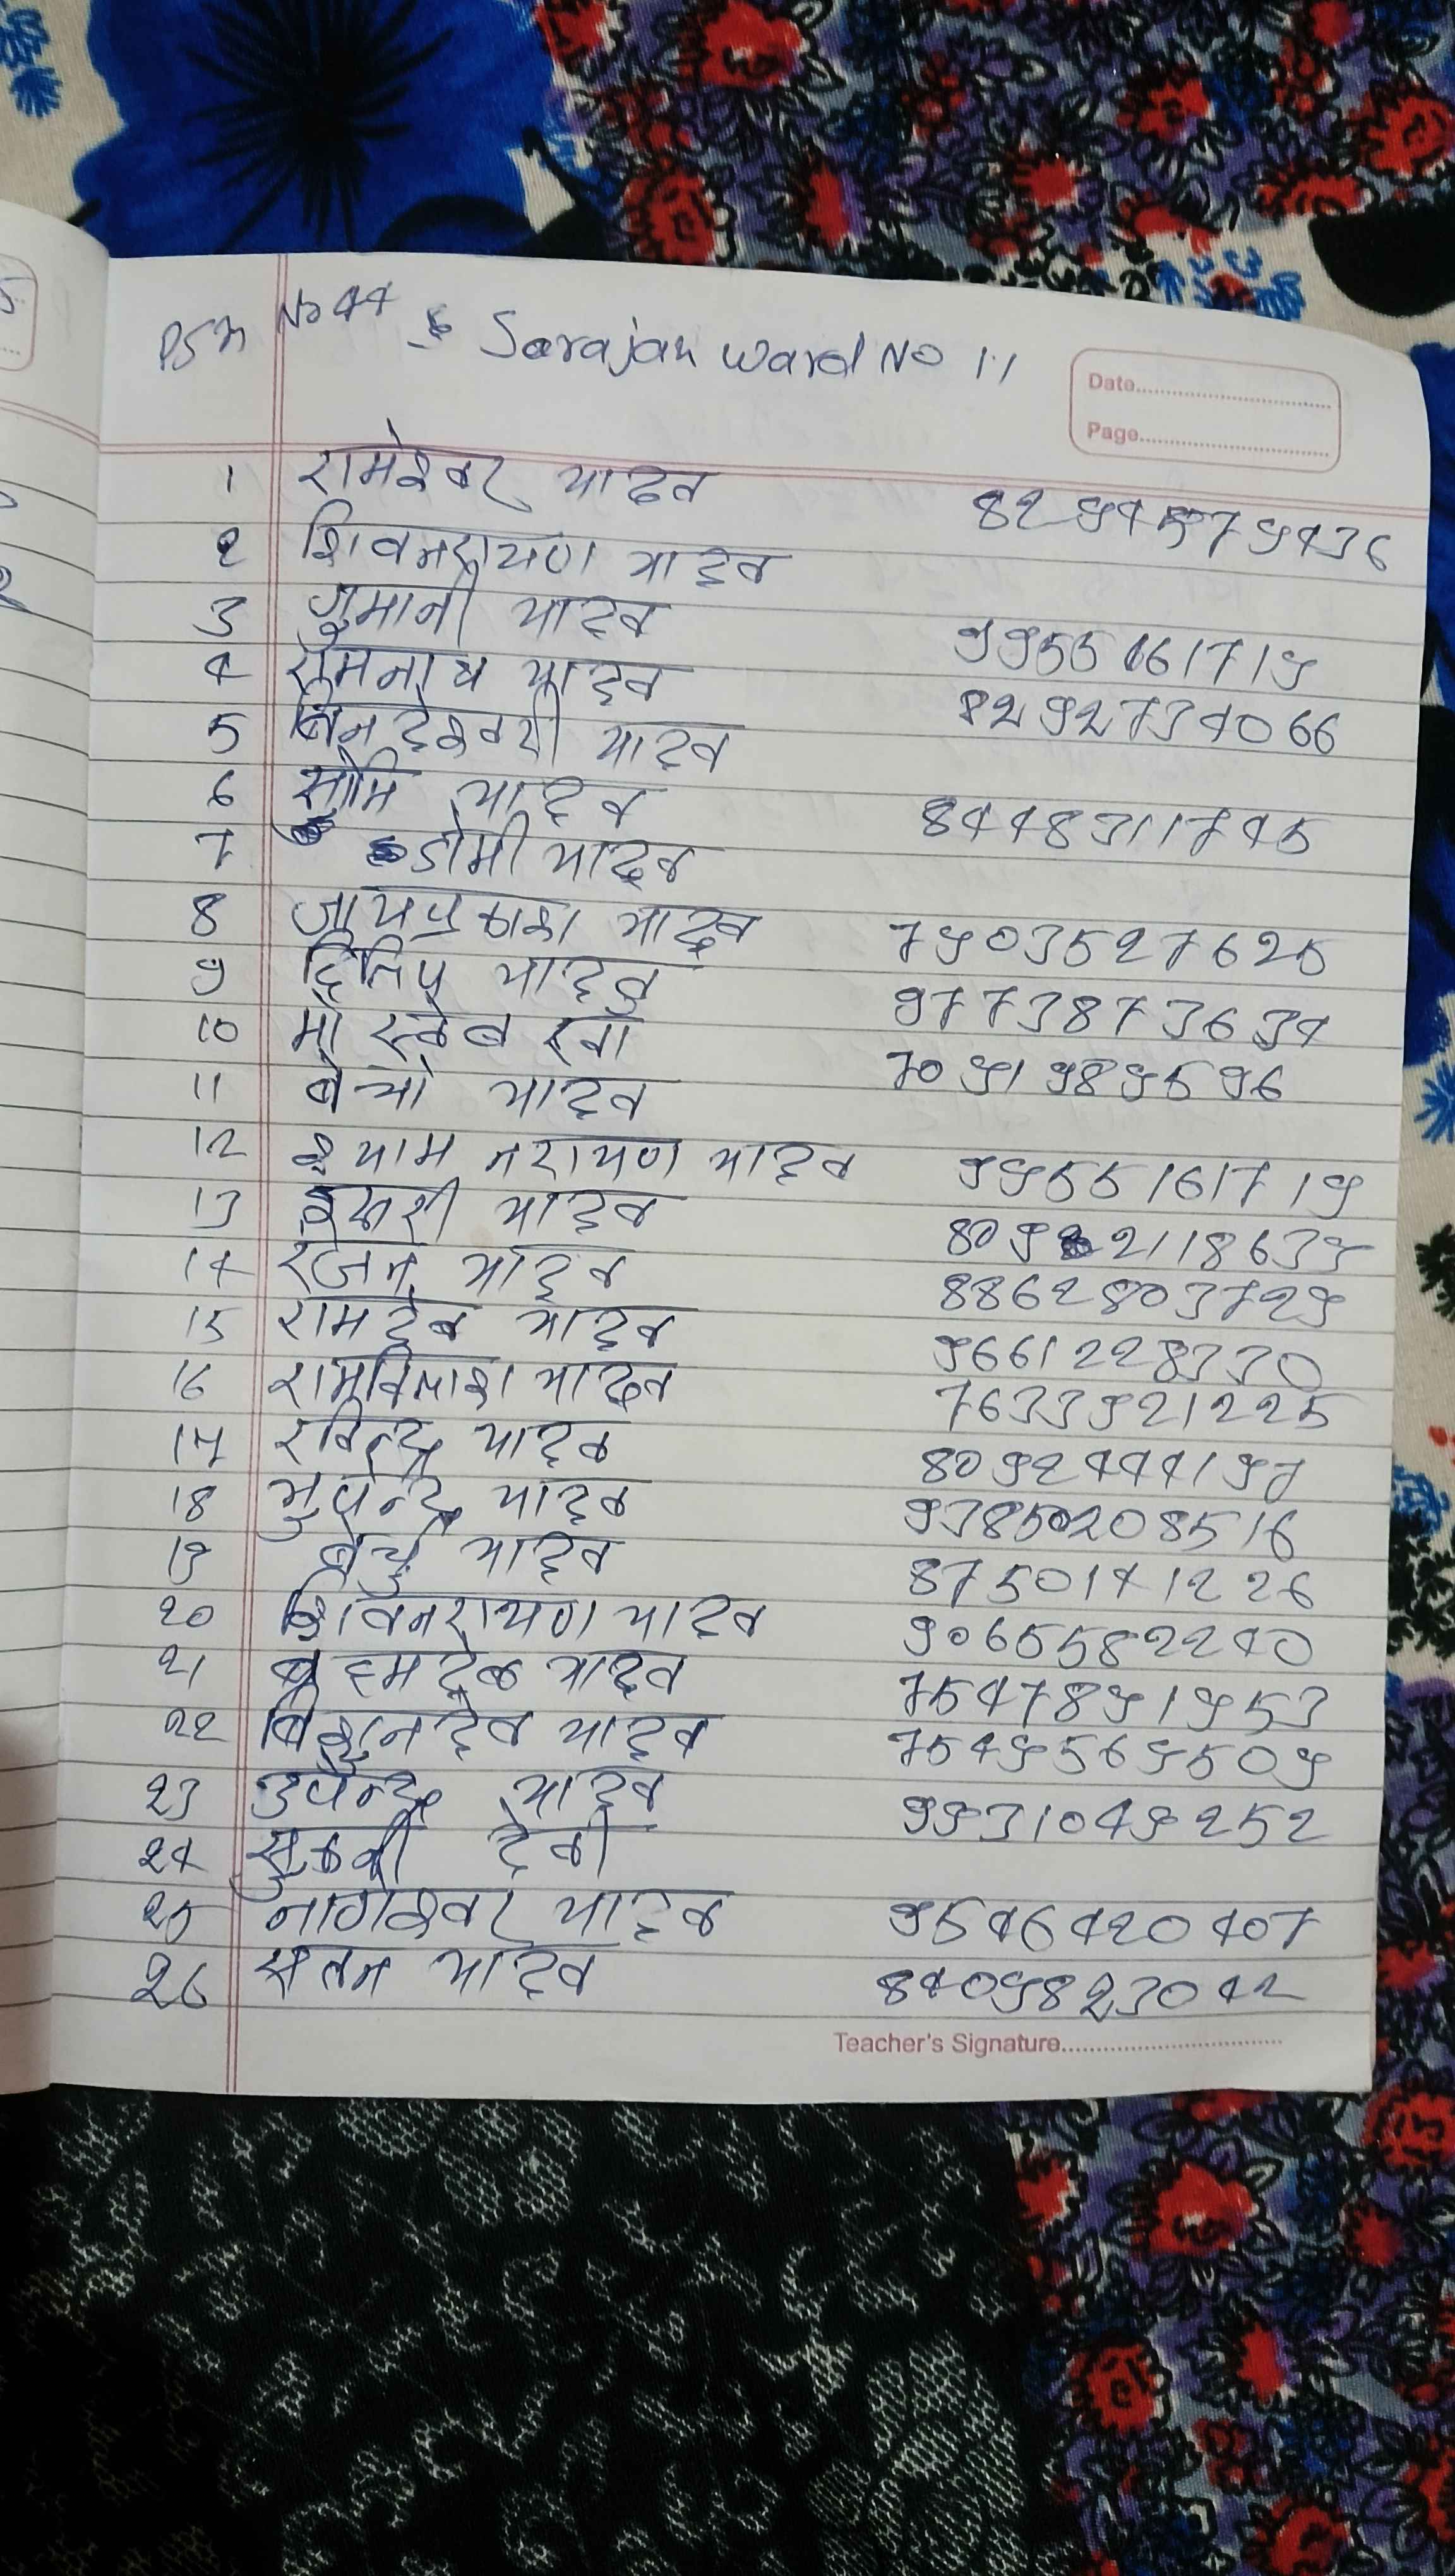 PSM No 44 Sarajan Ward No 11
Date
Page
1 रामेश्वर यादव 8294579436
2 शिवनरायण यादव
3 गुमानी यादव 9955161719
4 रामनाथ यादव 8292734066
5 बिनदेश्वरी यादव
6 सोमि यादव 8448311745
7 डोमी यादव
8 जायप्रकाश यादव 7903527625
9 दिलिप यादव 9773873634
10 मो 7091989596
11 बेचो यादव
12 श्याम नरायण यादव 9955161719
13 यादव 8092118639
14 रंजन यादव 8862803729
15 रामदेव यादव 9661228330
16 रामविलाश यादव 7633921225
17 रविन्द्र यादव 8092444197
18 भुपेन्द्र यादव 93850208516
19 बेचु यादव 8750141226
20 शिवनरायण यादव 9065582240
21 ब्रहमदेव यादव 7547891953
22 बिशुनदेव यादव 7549569509
23 उपेन्द्र यादव 9931049252
24 देवी
25 नागेश्वर यादव 9546420407
26 सतन यादव 8409823042
Teacher's Signature